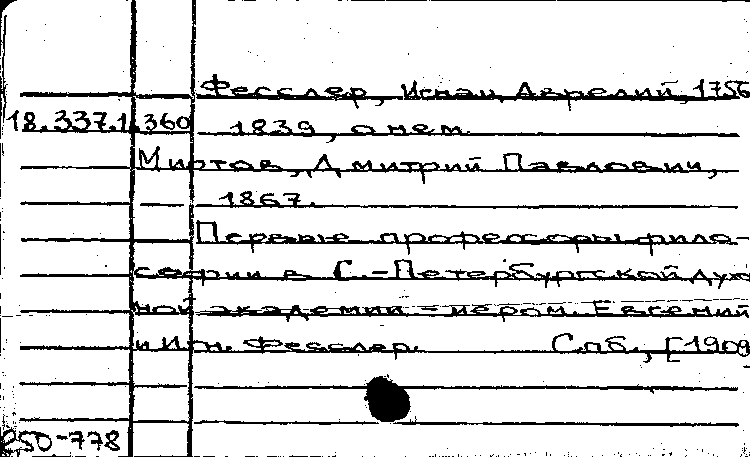 Фесслер, Игнац Аврелий, 1756
18.337.1.360 1839, о нем.
Миртов, Дмитрий Павлович,
1867.
Первые профессоры фило-
софии в С.-Петербургской дух
ной академии - иером. Евгений
и Игн. Фесслер. Спб., [1909
250-778